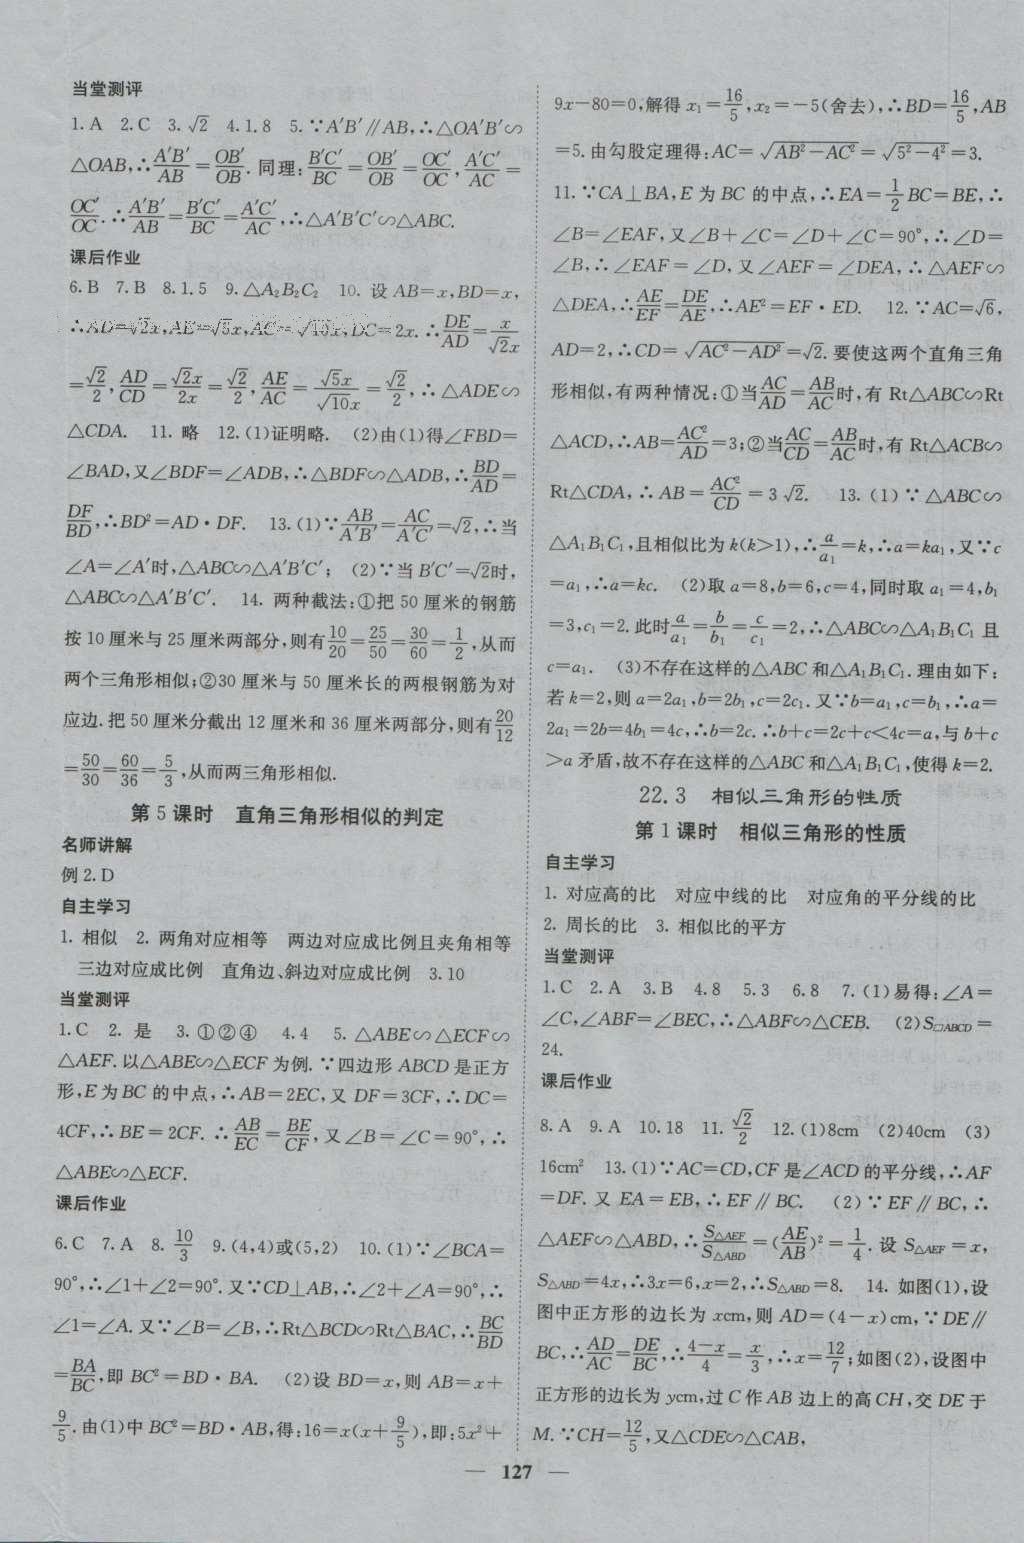 当堂测评
1.A 2.C 3.√2 4.1.8 5.∵A′B′∥AB,∴△OA′B′∽
△OAB,∴A′B′/AB=OB′/OB.同理:B′C′/BC=OB′/OB=OC′/OC,A′C′/AC=
OC′/OC.∴A′B′/AB=B′C′/BC=A′C′/AC,∴△A′B′C′∽△ABC.
课后作业
6.B 7.B 8.1.5 9.△A₂B₂C₂ 10.设AB=x,BD=x,
∴AD=√2x,AE=√5x,AC=√10x,DC=2x.∴DE/AD=x/√2x
=√2/2,AD/CD=√2x/2x=√2/2,AE/AC=√5x/√10x=√2/2,∴△ADE∽
△CDA. 11.略 12.(1)证明略. (2)由(1)得∠FBD=
∠BAD,又∠BDF=∠ADB,∴△BDF∽△ADB,∴BD/AD=
DF/BD,∴BD²=AD·DF. 13.(1)∵AB/A′B′=AC/A′C′=√2,∴当
∠A=∠A′时,△ABC∽△A′B′C′; (2)∵当B′C′=√2时,
△ABC∽△A′B′C′. 14.两种截法:①把50厘米的钢筋
按10厘米与25厘米两部分,则有10/20=25/50=30/60=1/2,从而
两个三角形相似;②30厘米与50厘米长的两根钢筋为对
应边.把50厘米分截出12厘米和36厘米两部分,则有20/12
=50/30=60/36=5/3,从而两三角形相似.
第5课时 直角三角形相似的判定
名师讲解
例2.D
自主学习
1.相似 2.两角对应相等 两边对应成比例且夹角相等
三边对应成比例 直角边、斜边对应成比例 3.10
当堂测评
1.C 2.是 3.①②④ 4.4 5.△ABE∽△ECF∽
△AEF.以△ABE∽△ECF为例.∵四边形ABCD是正方
形,E为BC的中点,∴AB=2EC,又DF=3CF,∴DC=
4CF,∴BE=2CF.∴AB/EC=BE/CF,又∠B=∠C=90°,∴
△ABE∽△ECF.
课后作业
6.C 7.A 8.10/3 9.(4,4)或(5,2) 10.(1)∵∠BCA=
90°,∴∠1+∠2=90°.又∵CD⊥AB,∴∠2+∠A=90°,∴
∠1=∠A.又∵∠B=∠B,∴Rt△BCD∽Rt△BAC,∴BC/BD
=BA/BC,即BC²=BD·BA. (2)设BD=x,则AB=x+
9/5.由(1)中BC²=BD·AB,得:16=x(x+9/5),即:5x²+
9x-80=0,解得x₁=16/5,x₂=-5(舍去),∴BD=16/5,AB
=5.由勾股定理得:AC=√AB²-AC²=√5²-4²=3.
11.∵CA⊥BA,E为BC的中点,∴EA=1/2BC=BE,∴
∠B=∠EAF,又∠B+∠C=∠D+∠C=90°,∴∠D=
∠B,∴∠EAF=∠D,又∠AEF=∠DEA,∴△AEF∽
△DEA,∴AE/EF=DE/AE,∴AE²=EF·ED. 12.∵AC=√6,
AD=2,∴CD=√AC²-AD²=√2.要使这两个直角三角
形相似,有两种情况:①当AC/AD=AB/AC时,有Rt△ABC∽Rt
△ACD,∴AB=AC²/AD=3;②当AC/CD=AB/AC时,有Rt△ACB∽
Rt△CDA,∴AB=AC²/CD=3√2. 13.(1)∵△ABC∽
△A₁B₁C₁,且相似比为k(k>1),∴a/a₁=k,∴a=ka₁,又∵c
=a₁,∴a=kc. (2)取a=8,b=6,c=4,同时取a₁=4,b₁
=3,c₁=2.此时a/a₁=b/b₁=c/c₁=2,∴△ABC∽△A₁B₁C₁且
c=a₁. (3)不存在这样的△ABC和△A₁B₁C₁.理由如下:
若k=2,则a=2a₁,b=2b₁,c=2c₁.又∵b=a₁,c=b₁,∴a=
2a₁=2b=4b₁=4c,∴b=2c.∴b+c=2c+c<4c=a,与b+c
>a矛盾,故不存在这样的△ABC和△A₁B₁C₁,使得k=2.
22.3 相似三角形的性质
第1课时 相似三角形的性质
自主学习
1.对应高的比 对应中线的比 对应角的平分线的比
2.周长的比 3.相似比的平方
当堂测评
1.C 2.A 3.B 4.8 5.3 6.8 7.(1)易得:∠A=
∠C,∠ABF=∠BEC,∴△ABF∽△CEB. (2)S□ABCD=
24.
课后作业
8.A 9.A 10.18 11.√2/2 12.(1)8cm (2)40cm (3)
16cm² 13.(1)∵AC=CD,CF是∠ACD的平分线,∴AF
=DF.又EA=EB,∴EF∥BC. (2)∵EF∥BC,∴
△AEF∽△ABD,∴S△AEF/S△ABD=(AE/AB)²=1/4.设S△AEF=x,
S△ABD=4x,∴3x=6,x=2,∴S△ABD=8. 14.如图(1),设
图中正方形的边长为xcm,则AD=(4-x)cm,∵DE∥
BC,∴AD/AC=DE/BC,∴4-x/4=x/3,∴x=12/7;如图(2),设图中
正方形的边长为ycm,过C作AB边上的高CH,交DE于
M.∵CH=12/5,又△CDE∽△CAB,
— 127 —